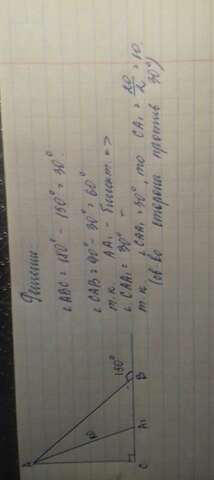 Решение.
∠ABC = 180° - 150° = 30°
∠CAB = 90° - 30° = 60°
т.к. AA₁ - биссект. =>
∠CAA₁ = 30°
т.к ∠CAA₁ = 30°, то CA₁ = 20/2 = 10.
(св-во стороны против 30°)
A
20
150°
C
A1
B